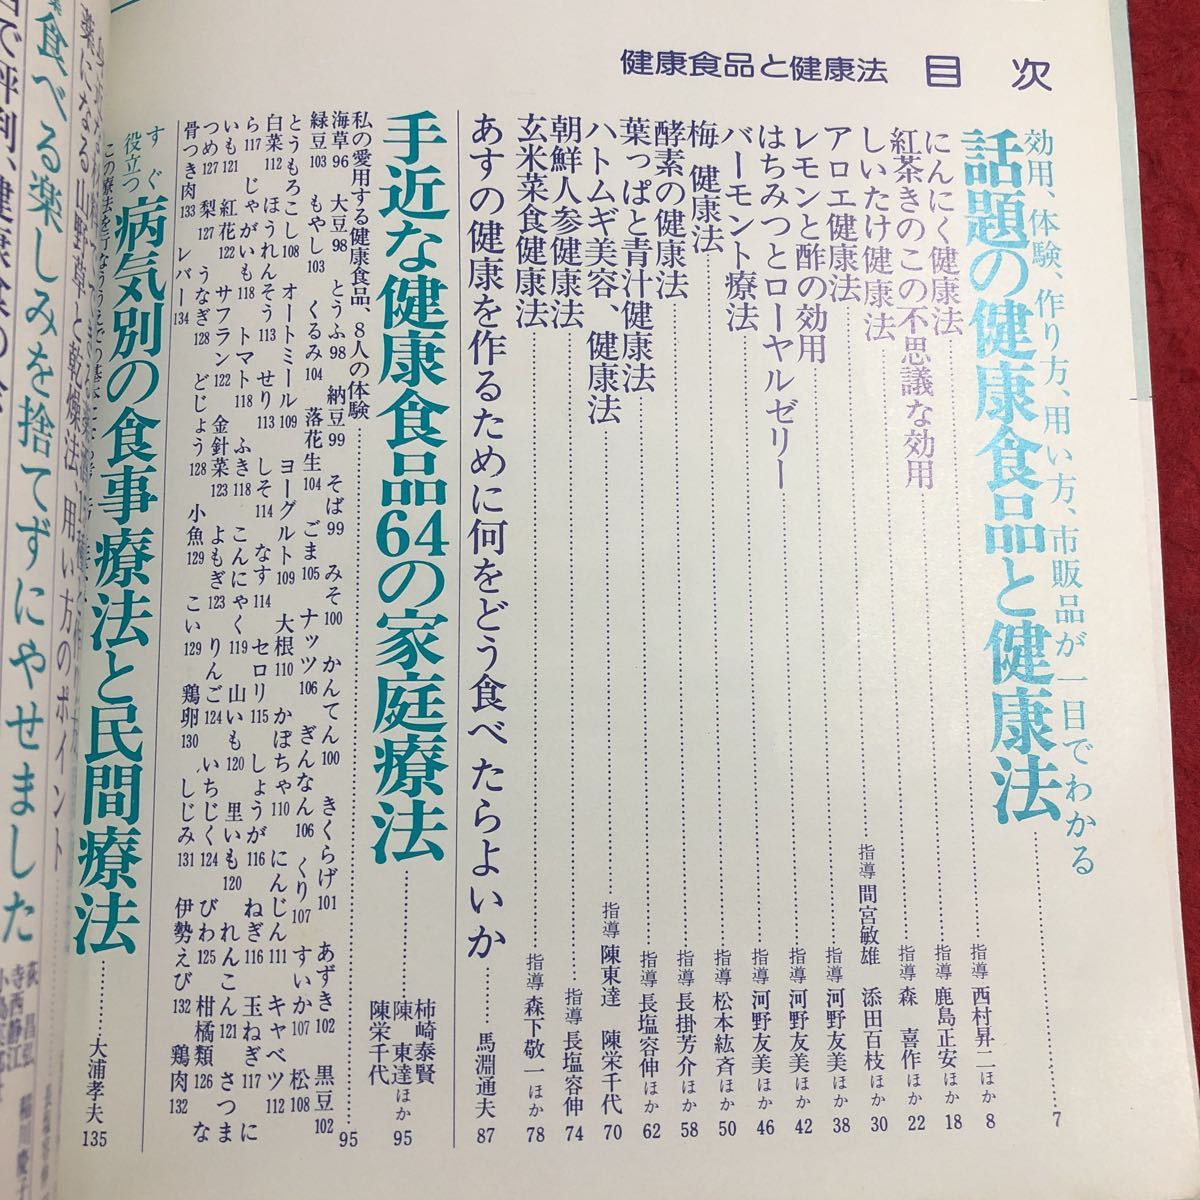 健康食品と健康法　目　次
効用、体験、作り方、用い方、市販品が一目でわかる
話題の健康食品と健康法……7
にんにく健康法……指導 西村昇二ほか 8
紅茶きのこの不思議な効用……指導 鹿島正安ほか 18
しいたけ健康法……指導 森 喜作ほか 22
アロエ健康法……指導 間宮敏雄 添田百枝ほか 30
レモンと酢の効用……指導 河野友美ほか 38
はちみつとローヤルゼリー……指導 河野友美ほか 42
バーモント療法……指導 河野友美ほか 46
梅 健康法……指導 松本紘斉ほか 50
酵素の健康法……指導 長掛芳介ほか 58
葉っぱと青汁健康法……指導 長塩容伸ほか 62
ハトムギ美容、健康法……指導 陳東達 陳栄千代 70
朝鮮人参健康法……指導 長塩容伸 74
玄米菜食健康法……指導 森下敬一ほか 78
あすの健康を作るために何をどう食べたらよいか……馬淵通夫 87
手近な健康食品64の家庭療法……柿崎泰賢 陳 東達ほか 陳栄千代 95
私の愛用する健康食品、8人の体験……95
海草96 大豆98 とうふ98 納豆99 そば99 みそ100 かんてん100 きくらげ101 あずき102 黒豆102
緑豆103 もやし103 くるみ104 落花生104 ごま105 ナッツ106 ぎんなん106 くり107 すいか107 松108
とうもろこし108 オートミール109 ヨーグルト109 大根110 かぼちゃ110 にんじん111 キャベツ112
白菜112 ほうれんそう113 せり113 しそ114 なす114 セロリ115 しょうが116 ねぎ116 玉ねぎ117 に
ら117 じゃがいも118 トマト118 ふき118 こんにゃく119 山いも120 里いも120 れんこん121 さつま
いも121 紅花122 サフラン122 金針菜123 よもぎ123 りんご124 いちじく124 びわ125 柑橘類126 な
つめ127 梨127 うなぎ128 どじょう128 小魚129 こい129 鶏卵130 しじみ131 伊勢えび132 鶏肉132
骨つき肉133 レバー134
すぐ役立つ 病気別の食事療法と民間療法……大浦孝夫 135
薬になる山野草と乾燥法、用い方のポイント
食べる楽しみを捨てずにやせました